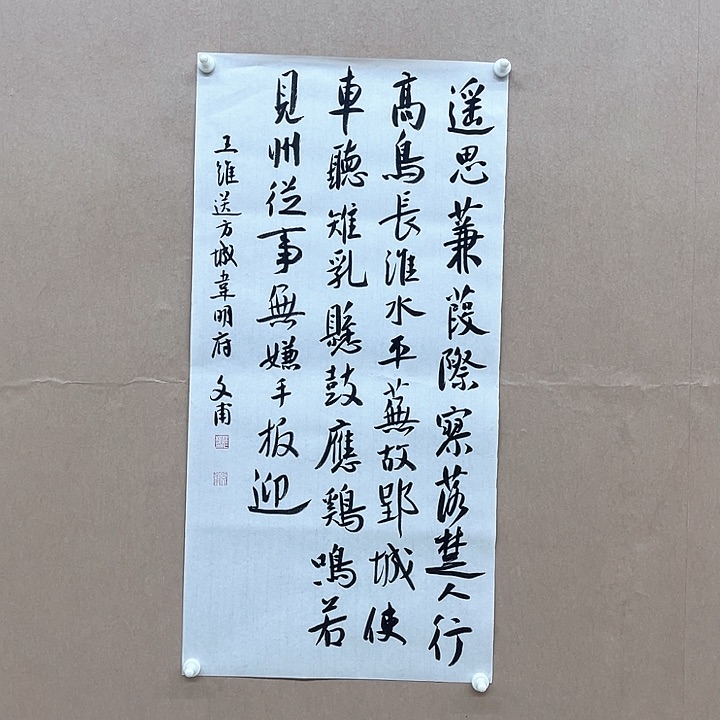 遥思蒹葭際寥落楚人行
高鳥長淮水平蕪故郢城使
車聽雉乳懸鼓應鷄鳴若
見州從事無嫌手板迎
王維送方城韋明府 文甫